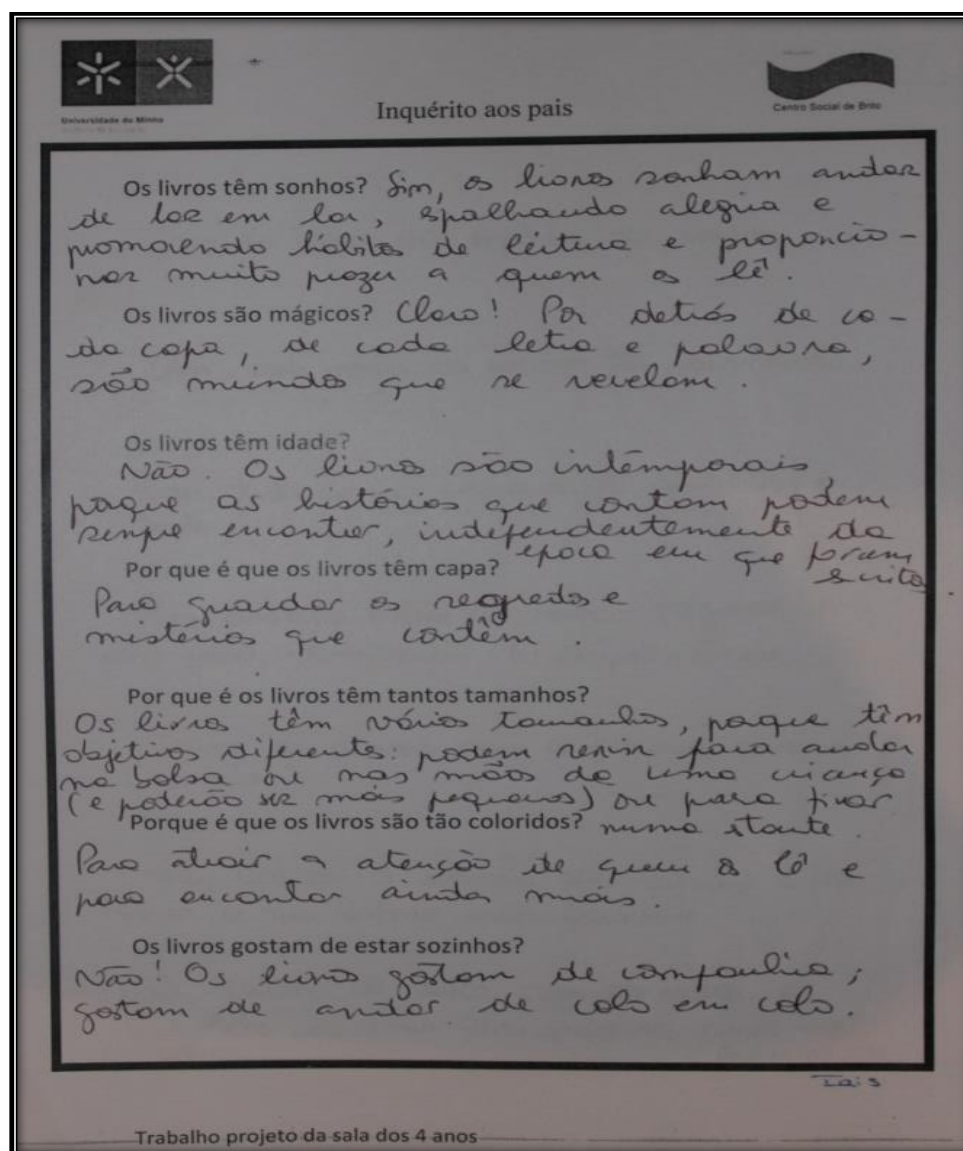 Universidade do Minho
Centro Social de Brito
Inquérito aos pais
Os livros têm sonhos? Sim, os livros sonham andar
de lar em lar, espalhando alegria e
promovendo hábitos de leitura e proporcio-
nar muito prazer a quem os lê.
Os livros são mágicos? Claro! Por detrás de ca-
da capa, de cada letra e palavra,
são mundos que se revelam.
Os livros têm idade?
Não. Os livros são intemporais,
porque as histórias que contam podem
sempre encantar, independentemente da
época em que foram
escritos.
Por que é que os livros têm capa?
Para guardar os segredos e
mistérios que contêm.
Por que é os livros têm tantos tamanhos?
Os livros têm vários tamanhos, porque têm
objetivos diferentes: podem servir para andar
na bolsa ou nas mãos de uma criança
(e poderão ser mais pequenos) ou para ficar
numa estante.
Porque é que os livros são tão coloridos?
Para atrair a atenção de quem os lê e
para encantar ainda mais.
Os livros gostam de estar sozinhos?
Não! Os livros gostam de companhia;
gostam de andar de colo em colo.
Trabalho projeto da sala dos 4 anos